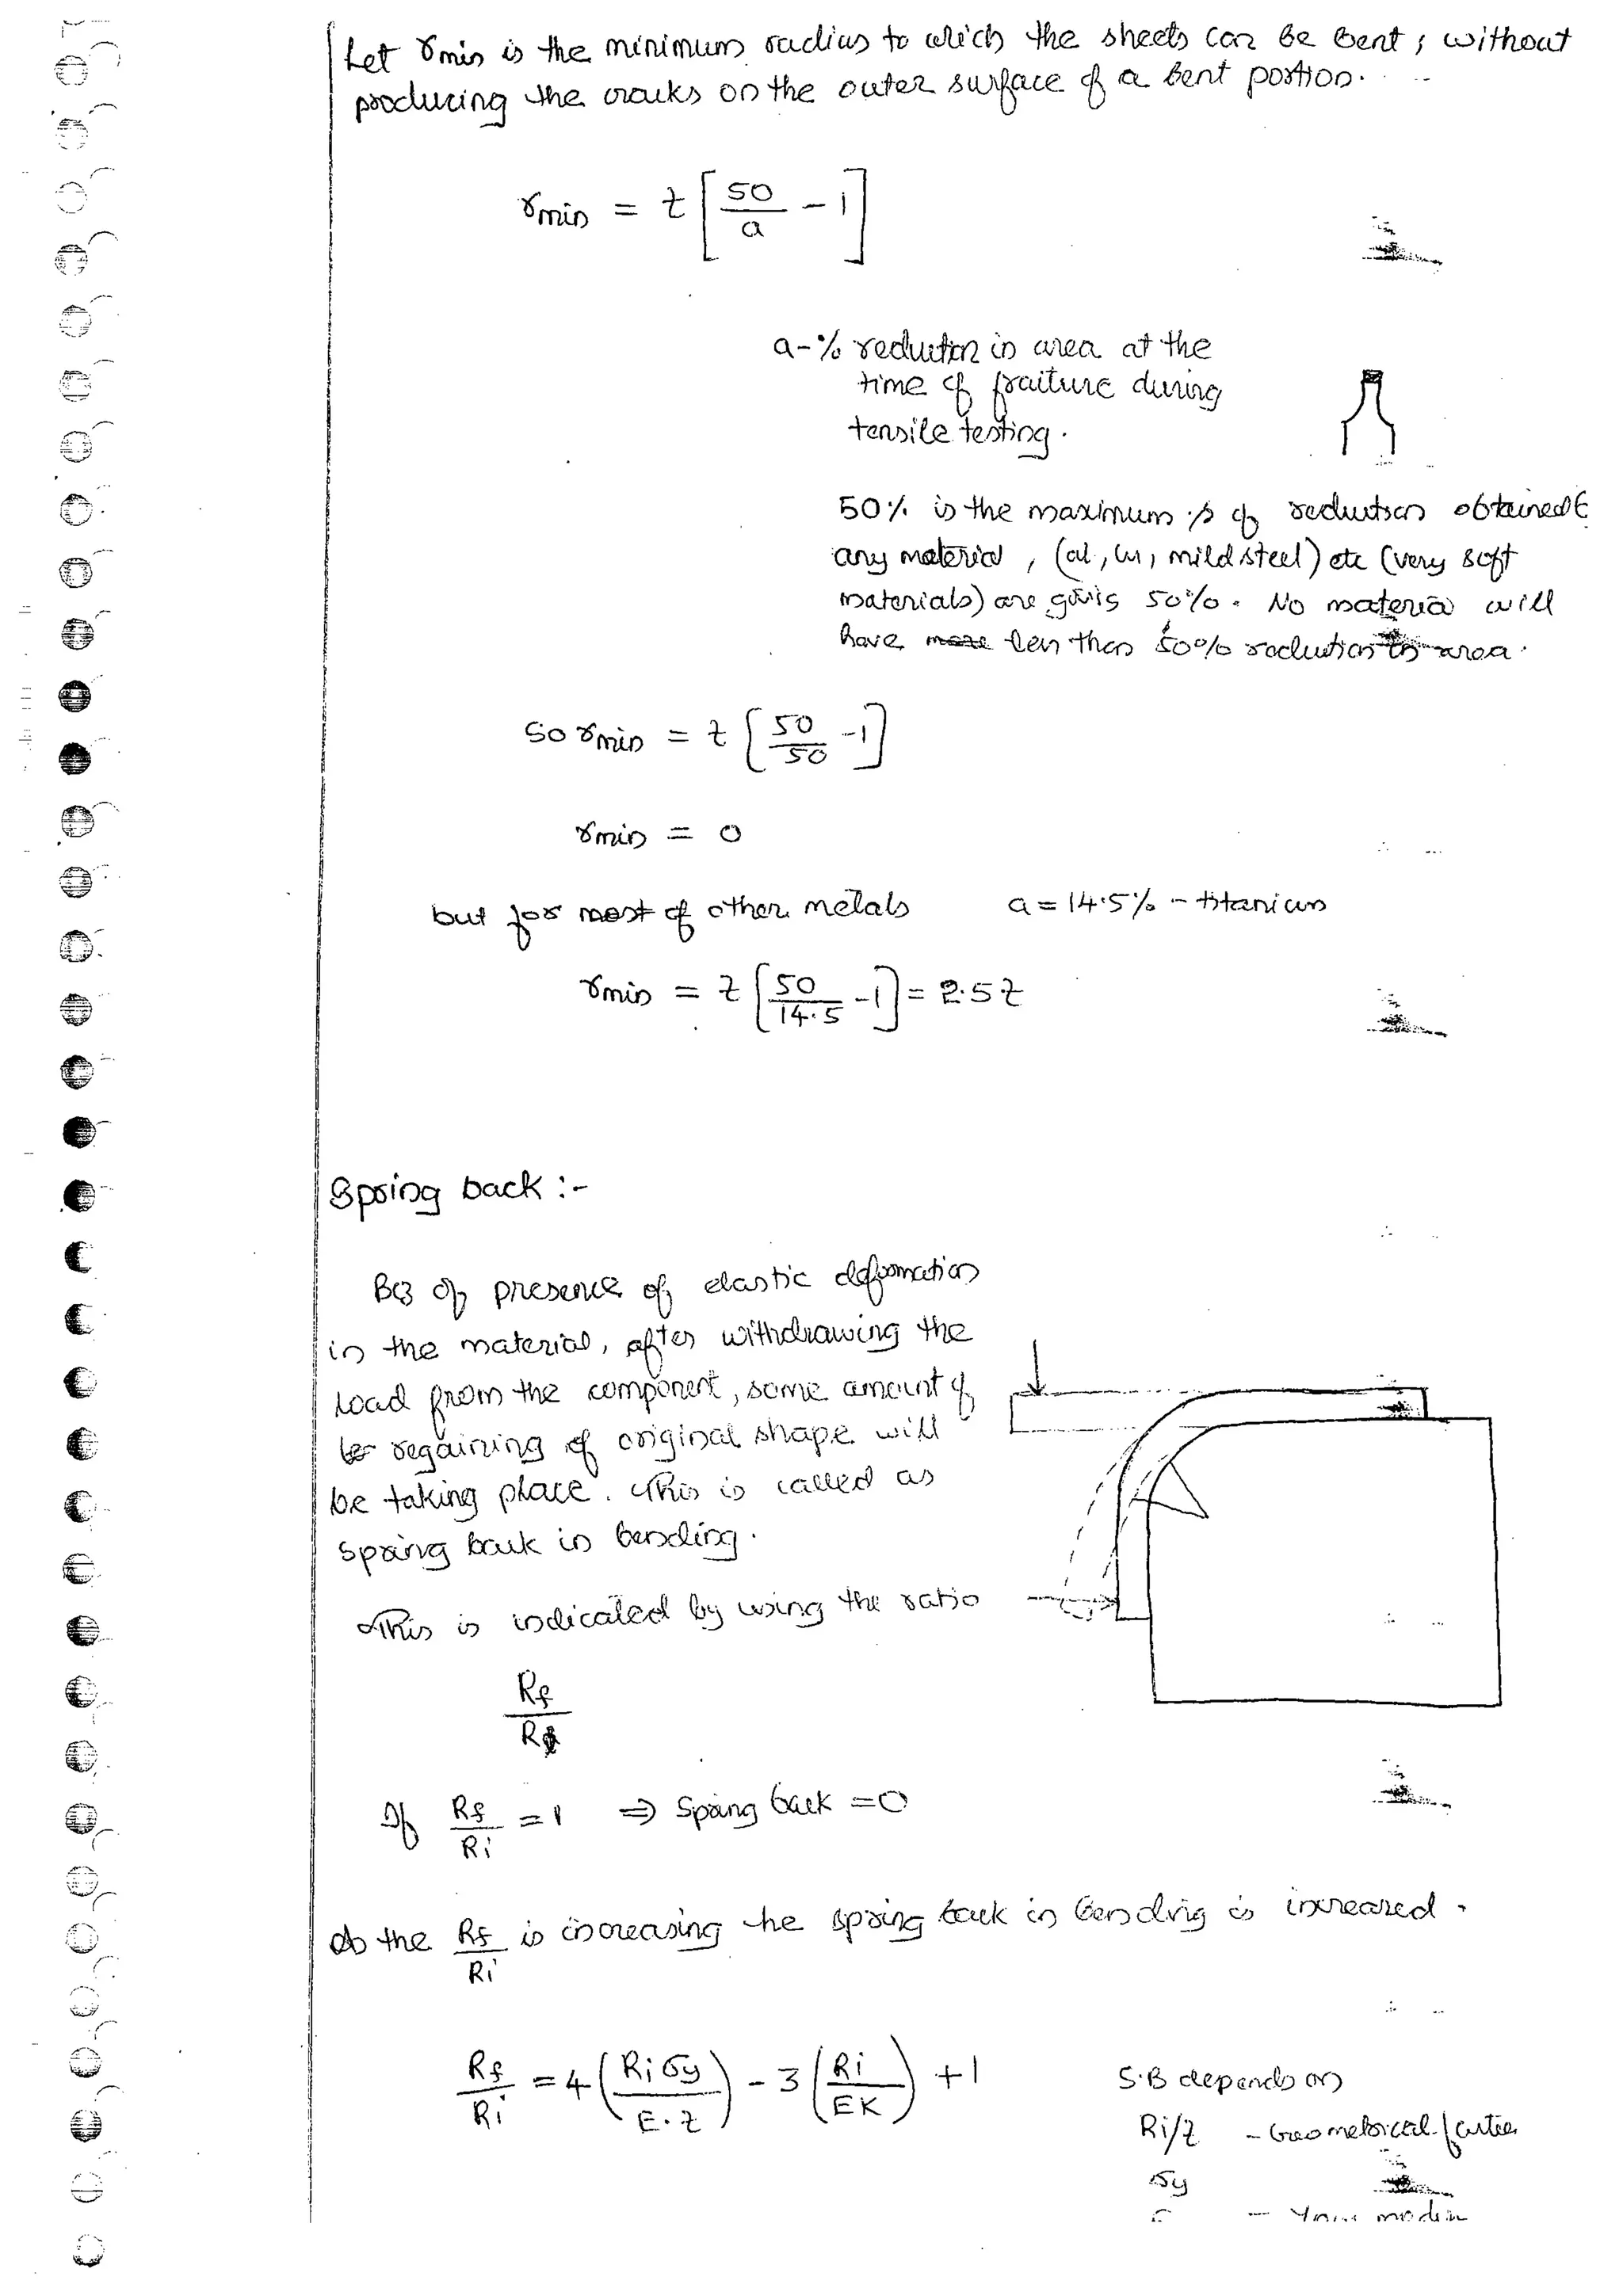 Let rmin is the minimum radius to which the sheets can be bent, without
producing the cracks on the outer surface of a bent portion.
rmin = t [ 50/a - 1 ]
a - % reduction in area at the
time of fracture during
tensile testing.
50% is the maximum % of reduction obtained
any material, (al, cu, mild steel) etc (very soft
materials) are giving 50%. No material will
have less than 50% reduction in area.
So rmin = t [ 50/50 - 1 ]
rmin = 0
but for most of other metals a = 14.5% - titanium
rmin = t [ 50/14.5 - 1 ] = 2.5t
Spring back :-
BCS of presence of elastic deformation
in the material, after withdrawing the
load from the component, some amount of
regaining of original shape will
be taking place. This is called as
spring back in bending.
This is indicated by using the ratio
Rf/Ri
If Rf/Ri = 1 ⇒ Spring back = 0
As the Rf/Ri is increasing the spring back in bending is increased.
Rf/Ri = 4 ( Ri σy / E.t ) - 3 ( Ri / EK ) + 1
S.B depends on
Ri/t - Geometrical factor
σy